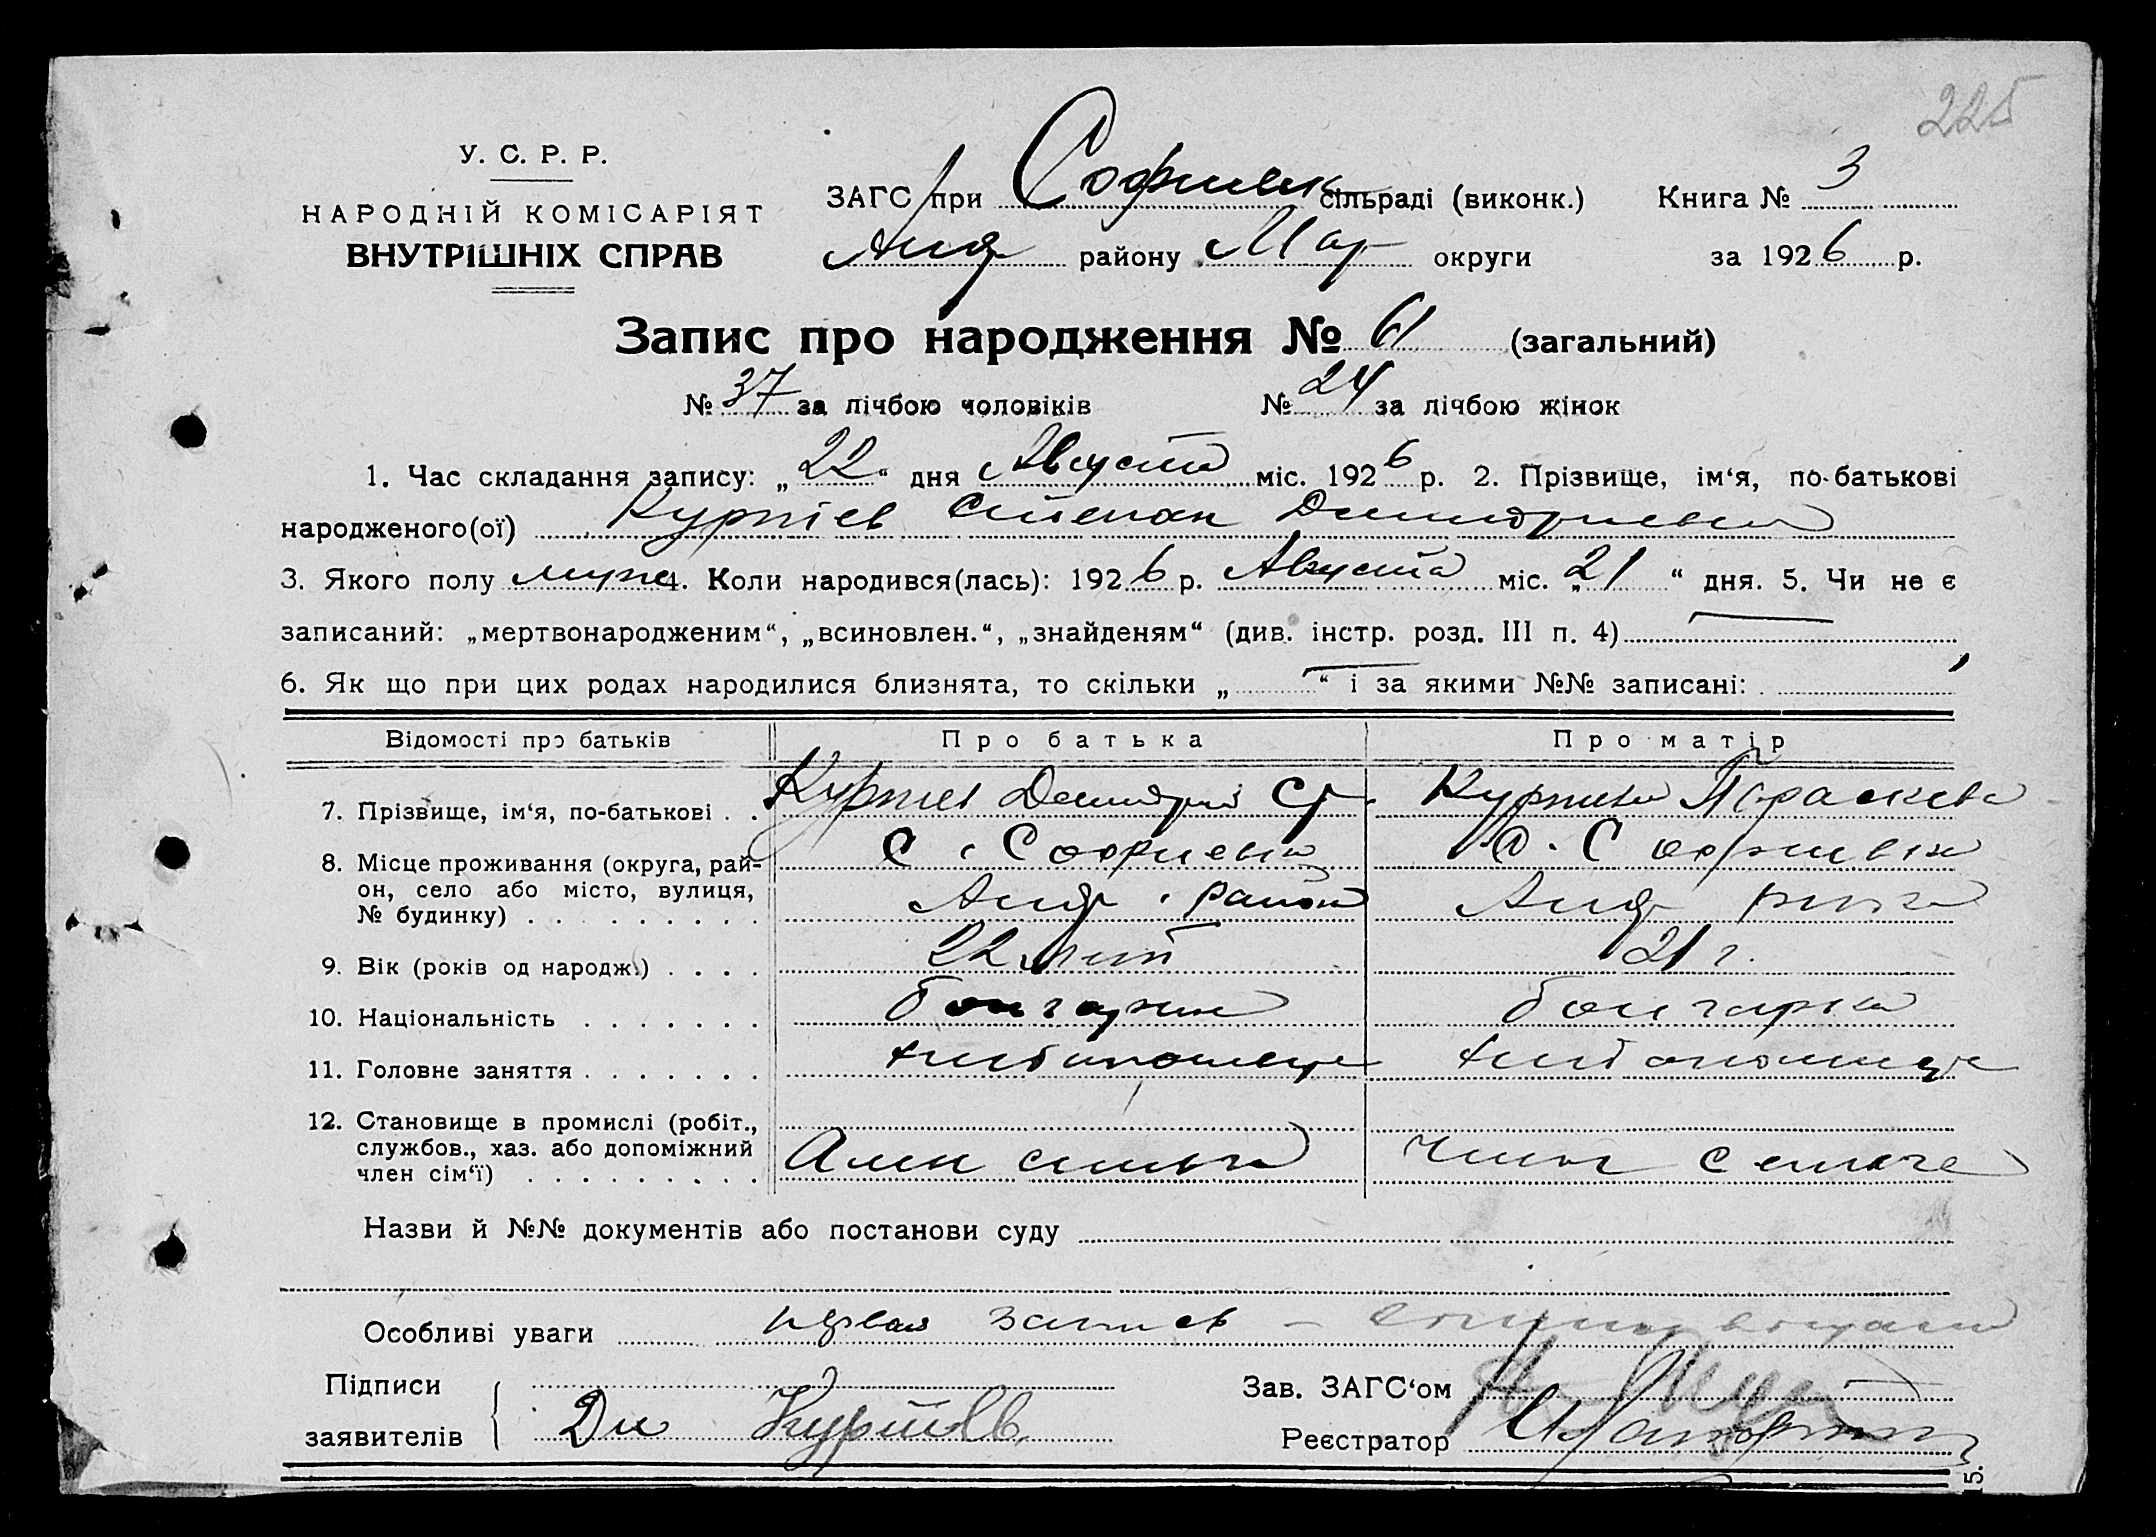 225
У. С. Р. Р.
НАРОДНІЙ КОМІСАРІЯТ
ВНУТРІШНІХ СПРАВ
ЗАГС при Софиевк сільраді (виконк.) Книга № 3
району Мар округи за 1926 р.
Запис про народження № 61 (загальний)
№ 37 за лічбою чоловіків № 24 за лічбою жінок
1. Час складання запису: „22“ дня Августа міс. 1926 р. 2. Прізвище, ім‘я, по-батькові
народженого(ої) Куртіев Степан Дмитриевич
3. Якого полу муж 4. Коли народився(лась): 1926 р. Августа міс. „21“ дня. 5. Чи не є
записаний: „мертвонародженим“, „всиновлен.“, „знайденям“ (див. інстр. розд. III п. 4)
6. Як що при цих родах народилися близнята, то скільки „ “ і за якими №№ записані:
Відомості про батьків Про батька Про матір
7. Прізвище, ім‘я, по-батькові Куртиев Дмитрий Куртиева Параскева
8. Місце проживання (округа, рай- с. Софиевка с. Софиевка
он, село або місто, вулиця, района
№ будинку)
9. Вік (років од народж.) 22 лет 21 г.
10. Національність болгарин болгарка
11. Головне заняття хлебопашец
12. Становище в промислі (робіт.,
службов., хаз. або допоміжний член семьи
член сім‘ї)
Назви й №№ документів або постанови суду
Особливі уваги первая запись –
Підписи Зав. ЗАГС‘ом
заявителів Дм Куртiевъ Реєстратор
5.